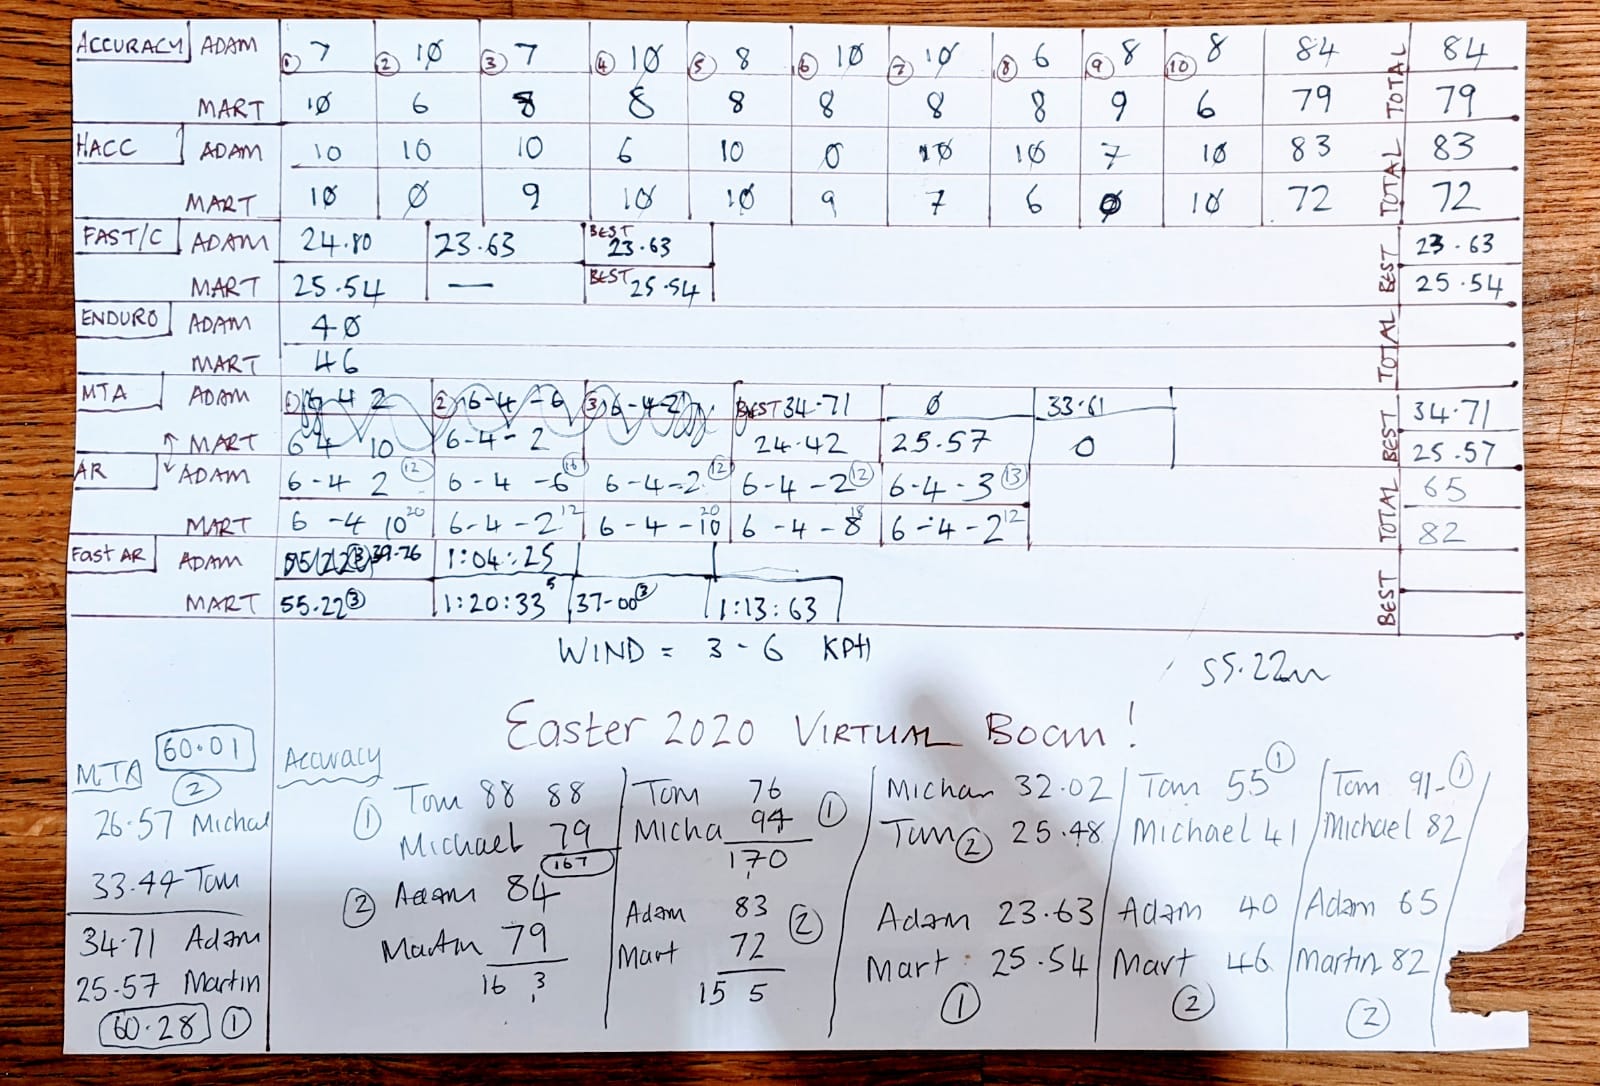 ACCURACY ADAM ① 7 ② 10 ③ 7 ④ 10 ⑤ 8 ⑥ 10 ⑦ 10 ⑧ 6 ⑨ 8 ⑩ 8 84 TOTAL 84
MART 10 6 8 8 8 8 8 8 9 6 79 79
HACC ADAM 10 10 10 6 10 0 10 10 7 10 83 TOTAL 83
MART 10 0 9 10 10 9 7 6 0 10 72 72
FAST/C ADAM 24.80 23.63 BEST 23.63 BEST 23.63
MART 25.54 — BEST 25.54 25.54
ENDURO ADAM 40 TOTAL
MART 46
MTA ADAM ① 6 4 2 ② 6-4-6 ③ 6-4-2 BEST 34.71 0 33.61 BEST 34.71
MART 6 4 10 6-4-2 24.42 25.57 0 25.57
AR ADAM 6-4 2 12 6-4-6 16 6-4-2 12 6-4-2 12 6-4-3 13 TOTAL 65
MART 6-4 10 20 6-4-2 12 6-4-10 20 6-4-8 18 6-4-2 12 82
Fast AR ADAM ③ 39.76 1:04:25 BEST
MART 55.22 ③ 1:20:33 5 37-00 ③ 1:13:63
WIND = 3-6 KPH
55.22m
Easter 2020 VIRTUAL BOOM!
MTA 60.01
②
26.57 Michael
33.44 Tom
34.71 Adam
25.57 Martin
60.28 ①
Accuracy
① Tom 88 88
Michael 79
167
② Adam 84
Martin 79
16 3
Tom 76
Micha 94 ①
170
Adam 83
Mart 72 ②
15 5
Michael 32.02
Tom ② 25.48
Adam 23.63
Mart 25.54
①
Tom 55 ①
Michael 41
Adam 40
Mart 46
②
Tom 91 ①
Michael 82
Adam 65
Martin 82
②